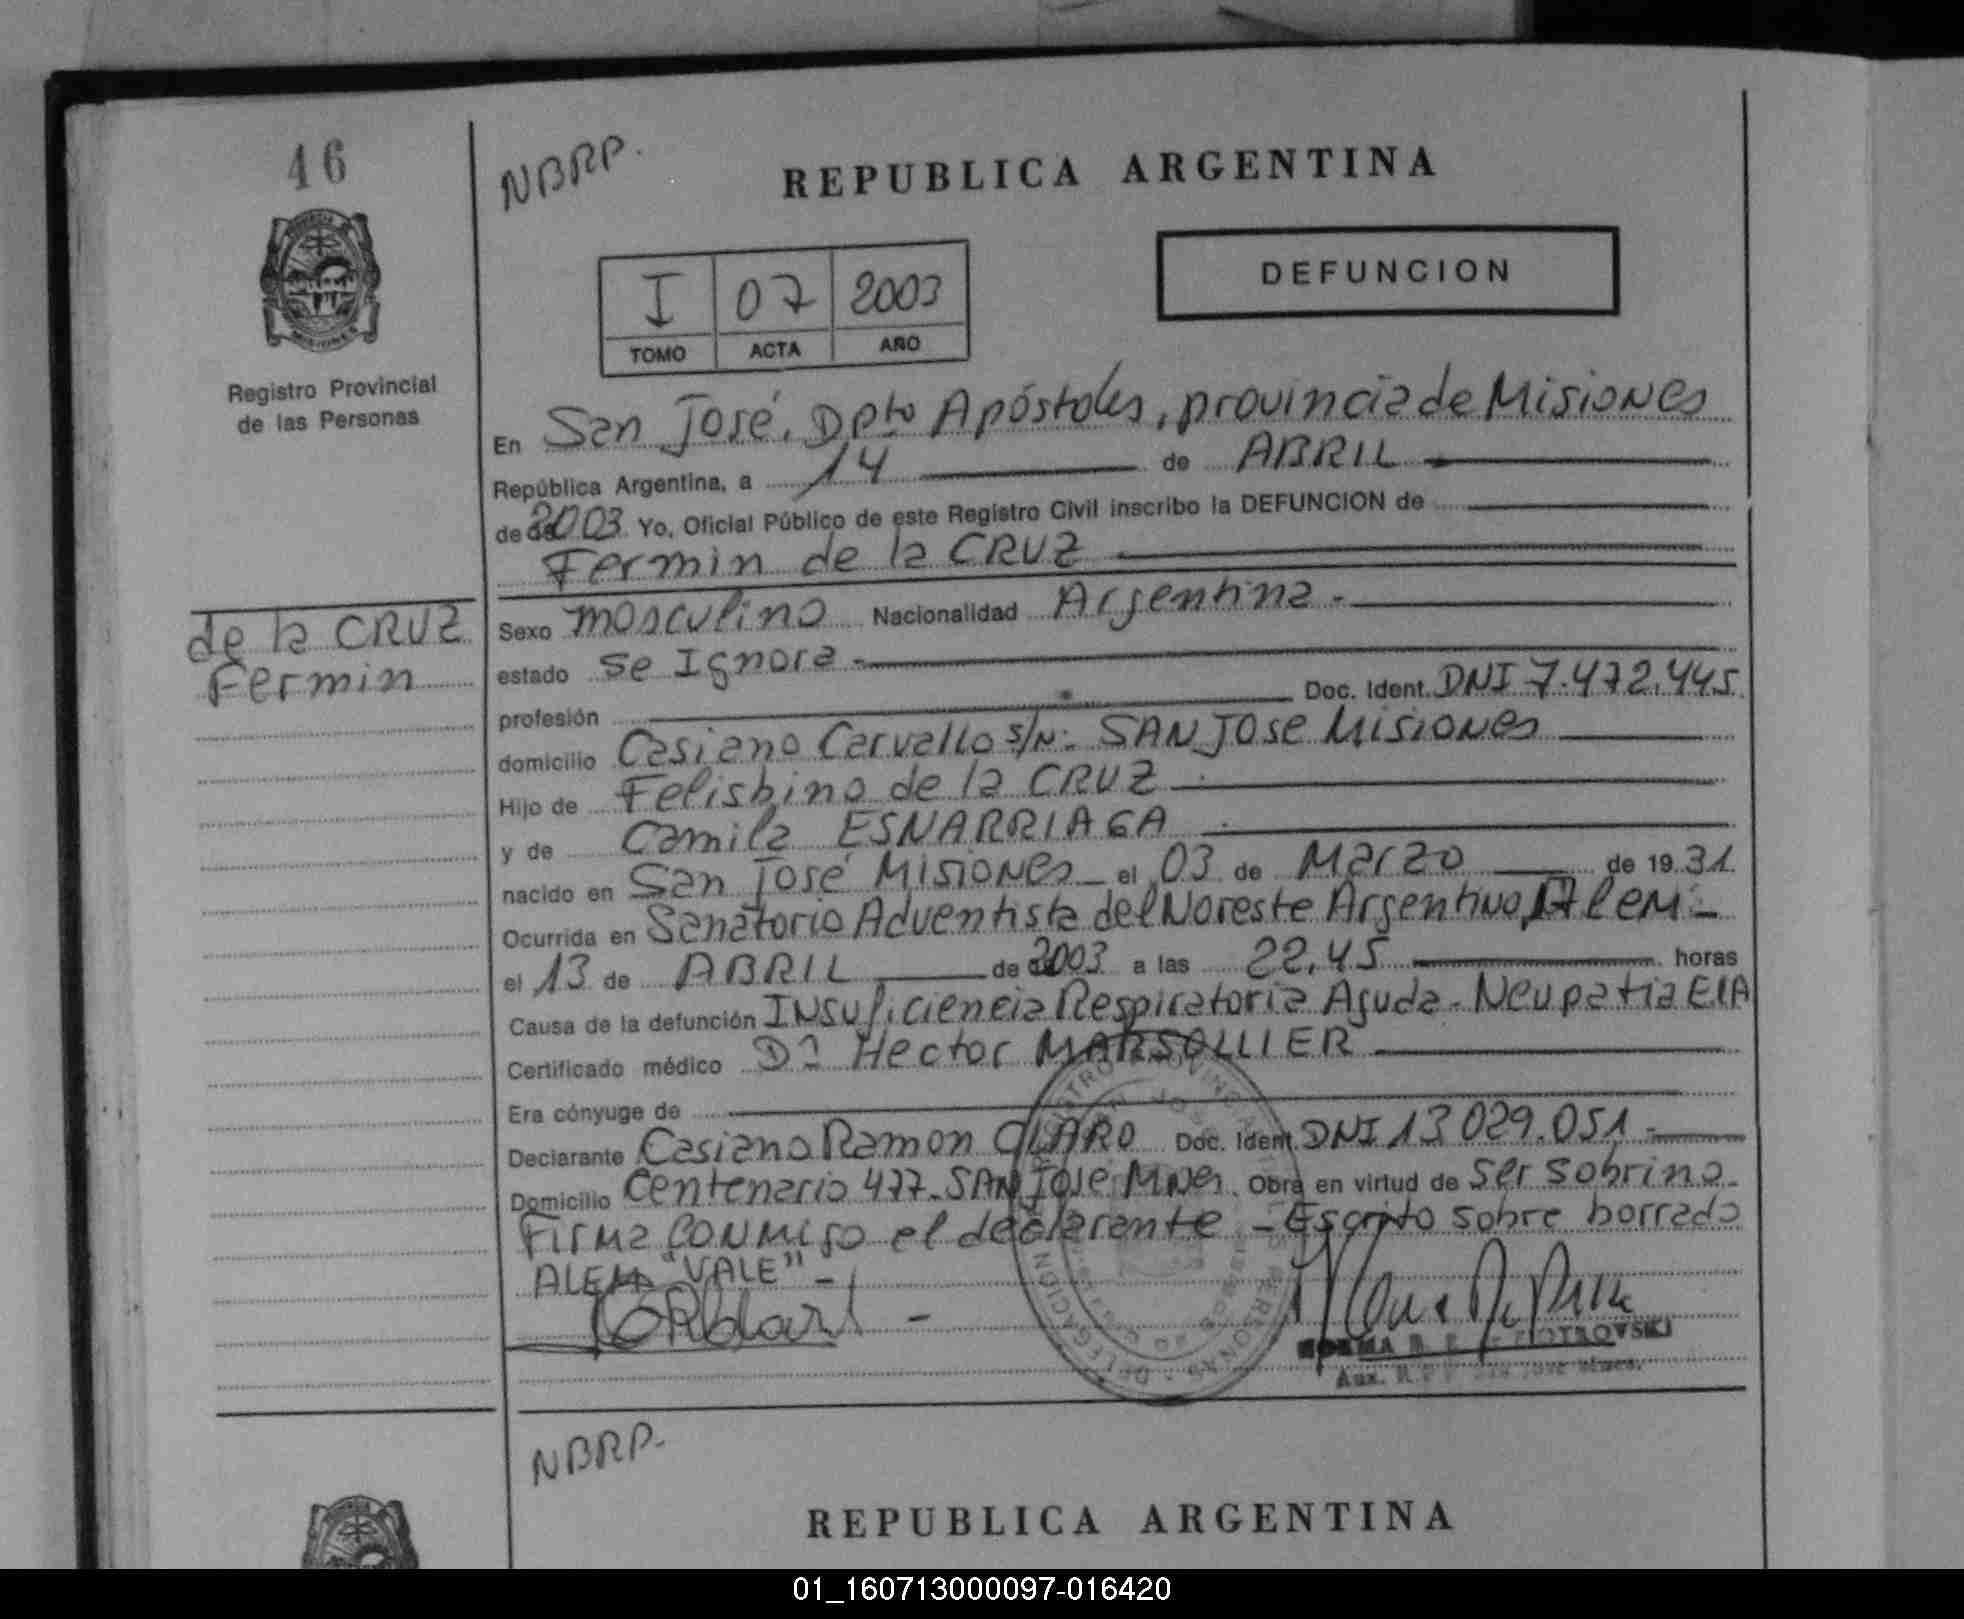 46
NBRP.
REPUBLICA ARGENTINA
DEFUNCION
I 07 2003
TOMO ACTA AÑO
Registro Provincial
de las Personas
En San José, Dpto Apóstoles, provincia de Misiones
República Argentina, a 14 de ABRIL
de 2003 Yo, Oficial Público de este Registro Civil inscribo la DEFUNCION de
Fermin de la CRUZ
de la CRUZ
Fermin
Sexo masculino Nacionalidad Argentina.-
estado se Ignora.-
profesión Doc. Ident. DNI 7.472.445
domicilio Casiano Carvallo s/N: SAN JOSE Misiones
Hijo de Felisbino de la CRUZ
y de Camila ESNARRIAGA
nacido en San José Misiones el 03 de Marzo de 1931
Ocurrida en Sanatorio Adventista del Noreste Argentino, Alem-
el 13 de ABRIL de 2003 a las 22,45 horas
Causa de la defunción INsuficiencia Respiratoria Aguda.- Neupatia EIA
Certificado médico Dr Hector MARSOLLIER
Era cónyuge de
Declarante Casiano Ramon CLARO Doc. Ident. DNI 13 029.051.-
Domicilio Centenario 477- SAN Jose Mnes. Obra en virtud de ser sobrino-
Firma CONMigo el declarante - Escrito sobre borrado
ALEM "VALE"-
NORMA PIOTROVSKI
Aux. R.P.P. San José Mnes.
NBRP-
REPUBLICA ARGENTINA
01_160713000097-016420